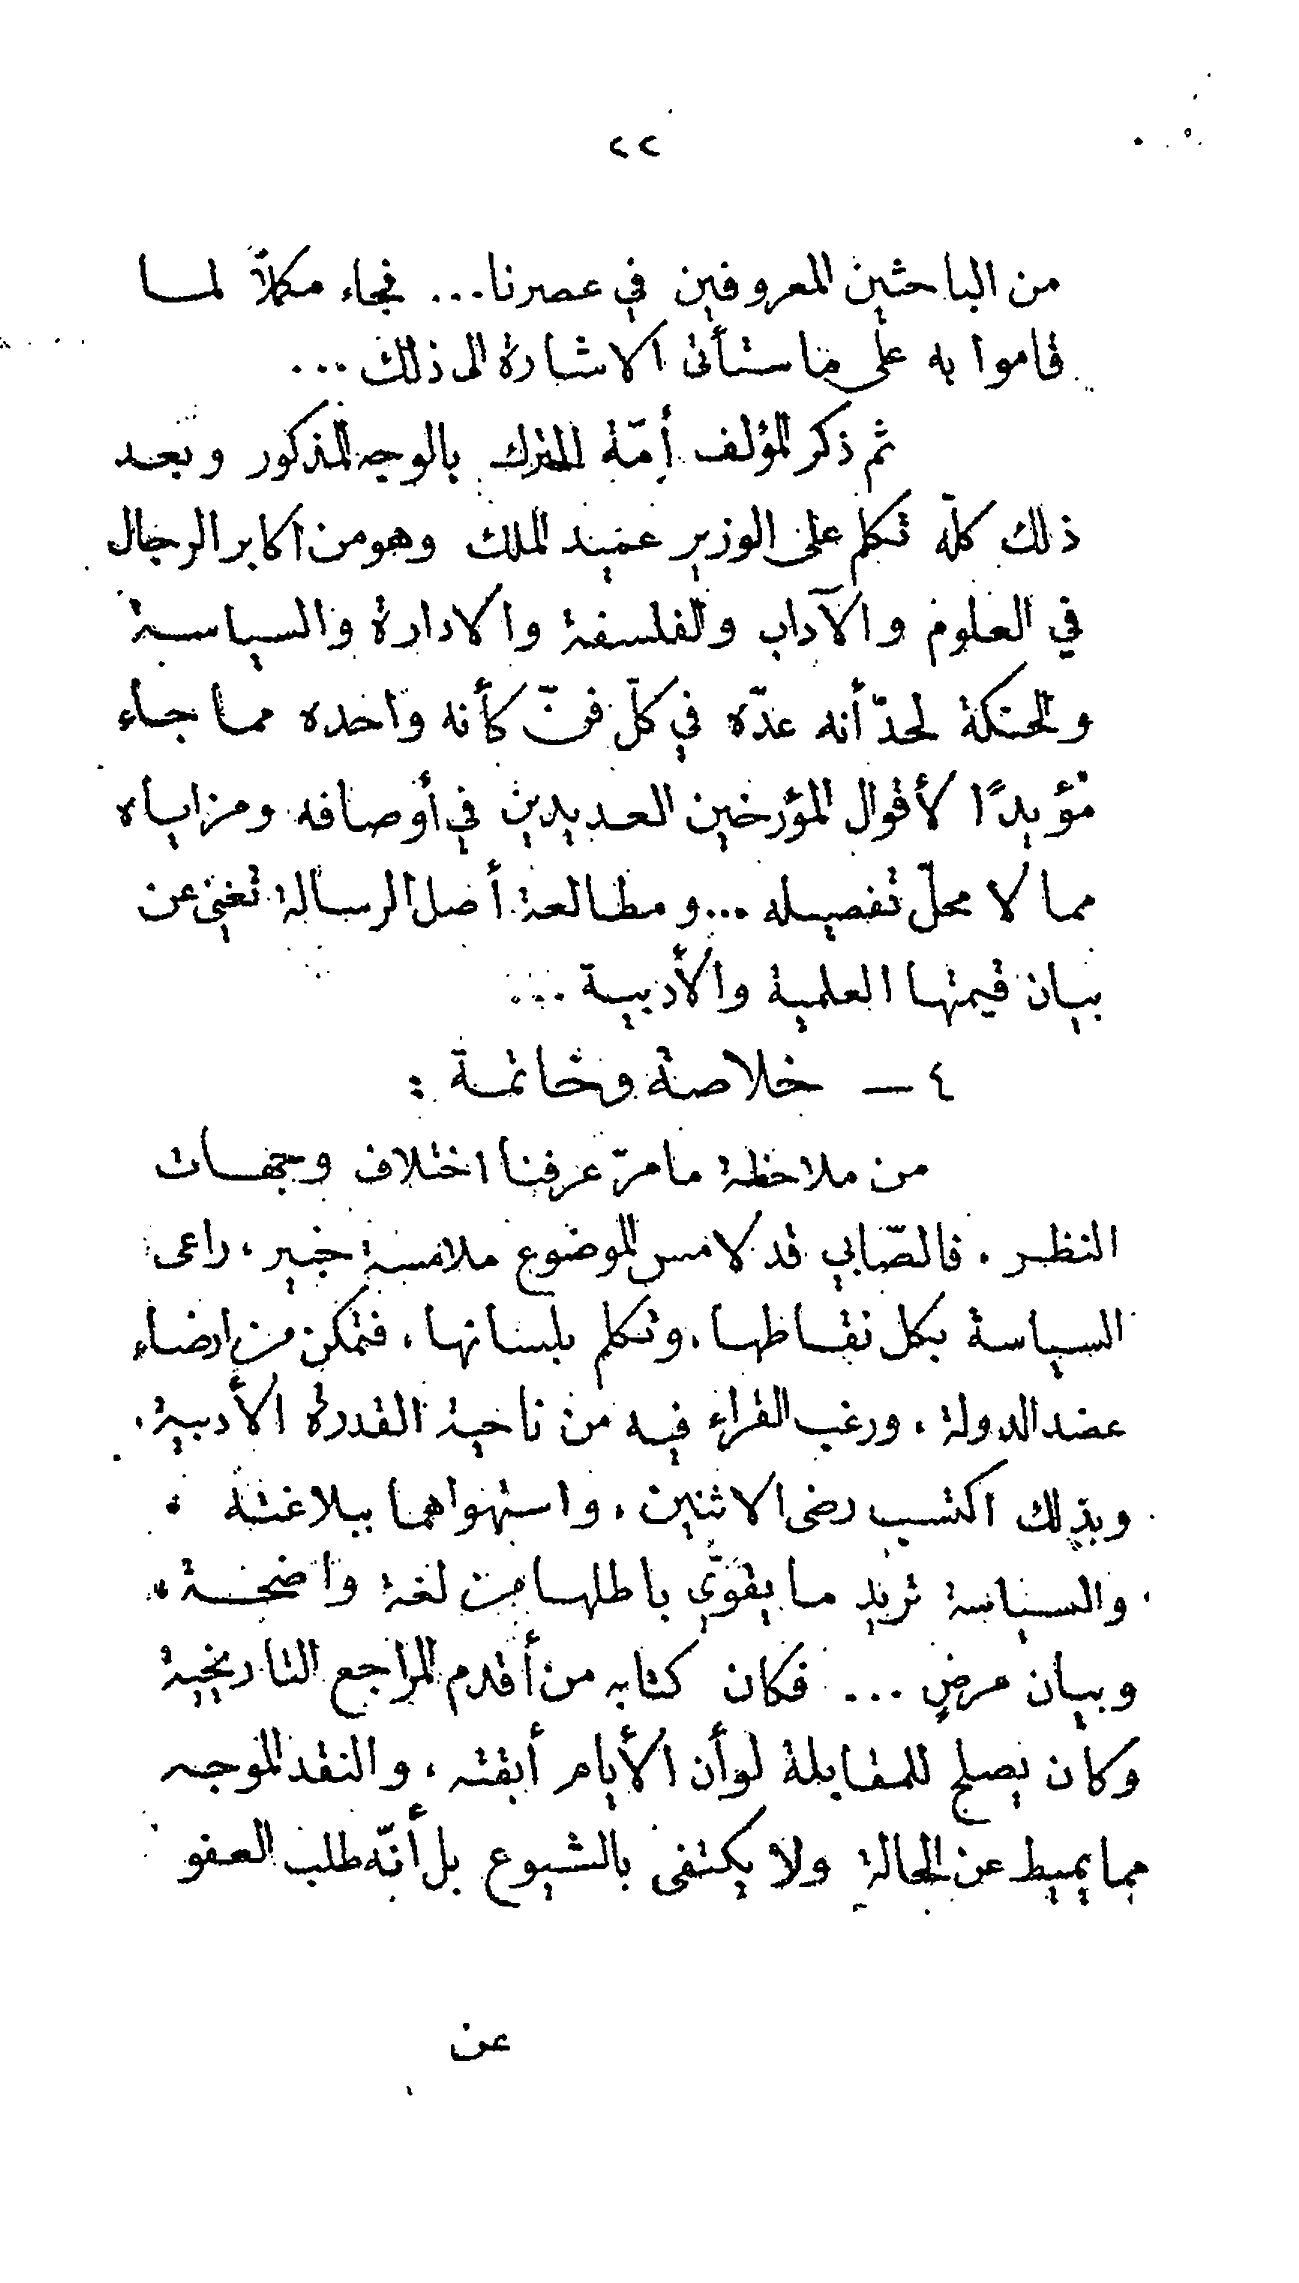 ٢٢
من الباحثين المعروفين في عصرنا... فجاء مكملاً لما
قاموا به على ما ستأتى الاشارة الى ذلك ...
ثم ذكر المؤلف أمّة الترك بالوجه المذكور وبعد
ذلك كلّه تكلم على الوزير عميد الملك وهو من اكابر الرجال
في العلوم والآداب والفلسفة والادارة والسياسة
والحنكة لحدّ أنه عدّه في كلّ فنّ كأنه واحده مما جاء
مؤيدًا لأقوال المؤرخين العديدين في أوصافه ومزاياه
مما لا محلّ تفصيله ... ومطالعة أصل الرسالة تغني عن
بيان قيمتها العلمية والأدبية ...
٤ - خلاصة وخاتمة :
من ملاحظة ما مرّ عرفنا اختلاف وجهات
النظر . فالصّابي قد لامس الموضوع ملامسة خبير ، راعى
السياسة بكل نقاطها ، وتكلم بلسانها ، فتمكن من ارضاء
عضد الدولة ، ورغب القراء فيه من ناحية القدرة الأدبية .
وبذلك اكتسب رضى الاثنين ، واستهواهما ببلاغته .
والسياسة تريد ما يقوّي باطلها من لغة واضحة ،
وبيان مرضٍ ... فكان كتابه من أقدم المراجع التاريخية
وكان يصلح للمقابلة لو أن الأيام أبقته ، والنقد الموجه
مما يميط عن الحالة ولا يكتفى بالشيوع بل أنّه طلب العفو
عن